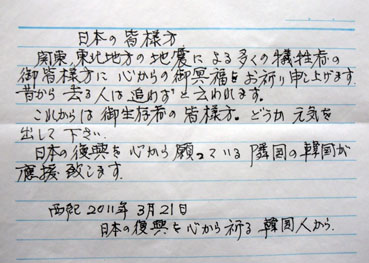 日本の皆様方
関東、東北地方の地震による多くの犠牲者の
御皆様方に心からの御冥福をお祈り申し上げます
昔から去る人は追わずと云われます。
これからは御生存者の皆様方。どうか元気を
出して下さい。
日本の復興を心から願っている隣国の韓国が
應援致します。
西紀 2011年 3月21日
日本の復興を心から祈る韓国人から.